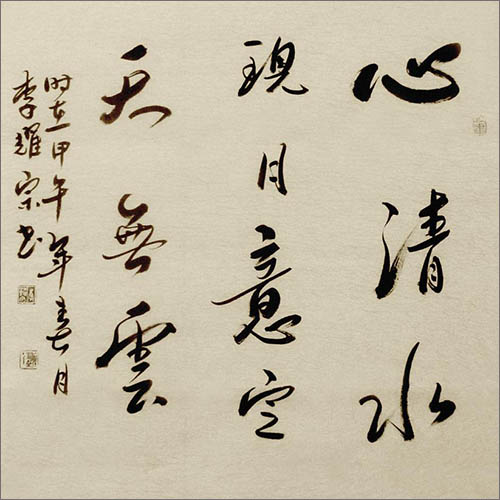 心清水
現月意定
天無雲
時在甲午年春月
李耀宗书